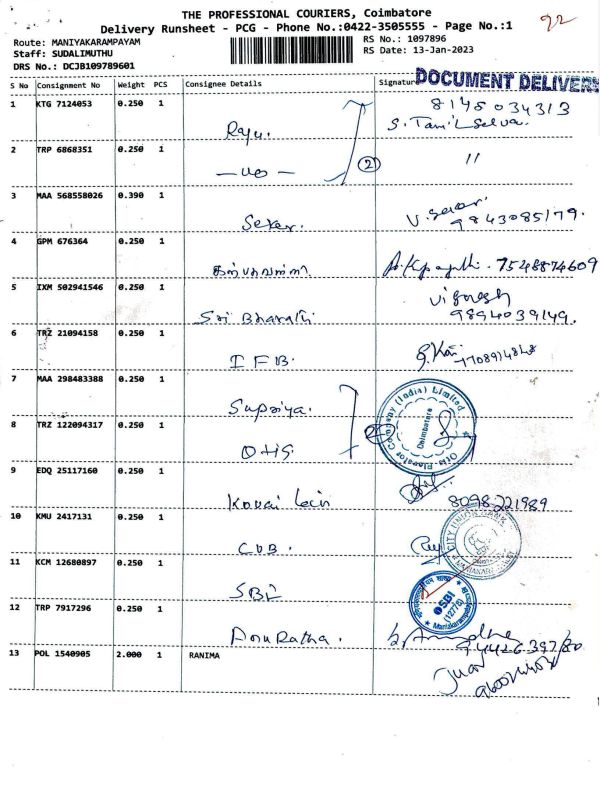 THE PROFESSIONAL COURIERS, Coimbatore
Delivery Runsheet - PCG - Phone No.:0422-3505555 - Page No.:1
92
Route: MANIYAKARAMPAYAM
RS No.: 1097896
Staff: SUDALIMUTHU
RS Date: 13-Jan-2023
DRS No.: DCJB109789601
S No Consignment No Weight PCS Consignee Details Signature DOCUMENT DELIVER
1 KTG 7124053 0.250 1 Raju. 8145034313
S. Tamil Selva.
2 TRP 6868351 0.250 1 2 "
3 MAA 568558026 0.390 1 Seker. V. 9843085179.
4 GPM 676364 0.250 1 7548874609
5 IXM 502941546 0.250 1 Sri Bharathi Vignesh
9894039149.
6 TRZ 21094158 0.250 1 IFB.
7 MAA 298483388 0.250 1 Supriya.
8 TRZ 122094317 0.250 1 OTIS. Otis Elevator Company (India) Limited Coimbatore
9 EDQ 25117160 0.250 1 Kovai 8098221989
10 KMU 2417131 0.250 1 CUB. CITY UNION BANK
11 KCM 12680897 0.250 1 SBI SBI (12776)
12 TRP 7917296 0.250 1 AnuRatha.
13 POL 1540905 2.000 1 RANIMA